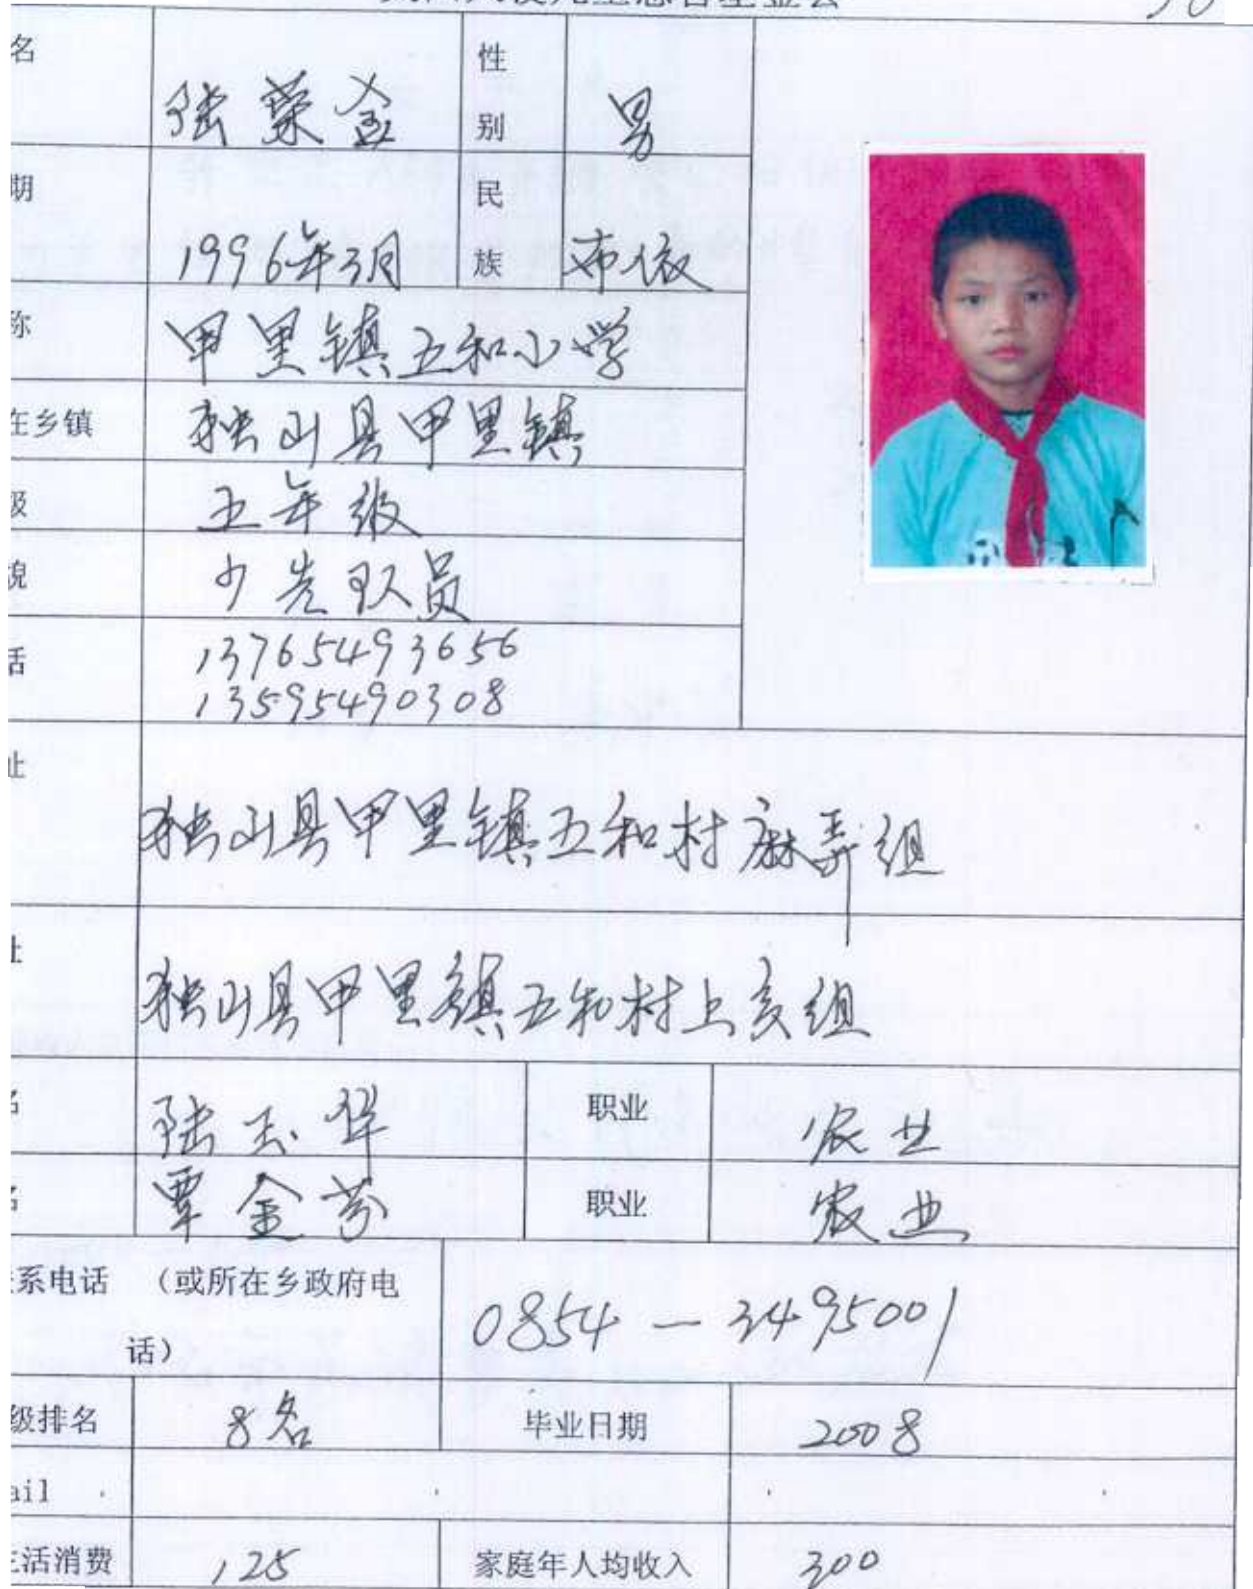 名 陆荣金 性别 男
期 1996年3月 民族 布依
称 甲里镇五和小学
在乡镇 独山县甲里镇
级 五年级
貌 少先队员
话 13765493656
13595490308
址 独山县甲里镇五和村麻弄组
址 独山县甲里镇五和村上亥组
名 陆玉华 职业 农业
名 覃金芬 职业 农业
系电话 (或所在乡政府电
话) 0854-3495001
级排名 8名 毕业日期 2008
ail
生活消费 125 家庭年人均收入 300